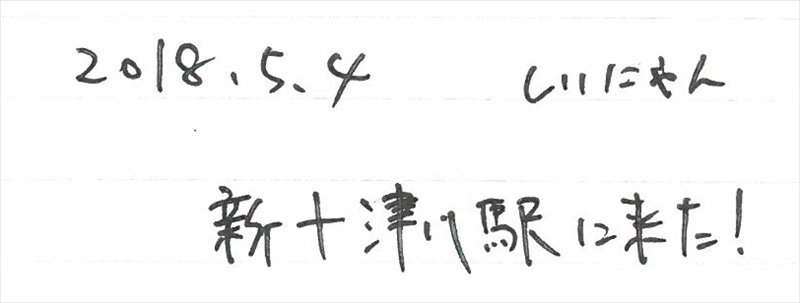 2018.5.4 しいにゃん
新十津川駅に来た!